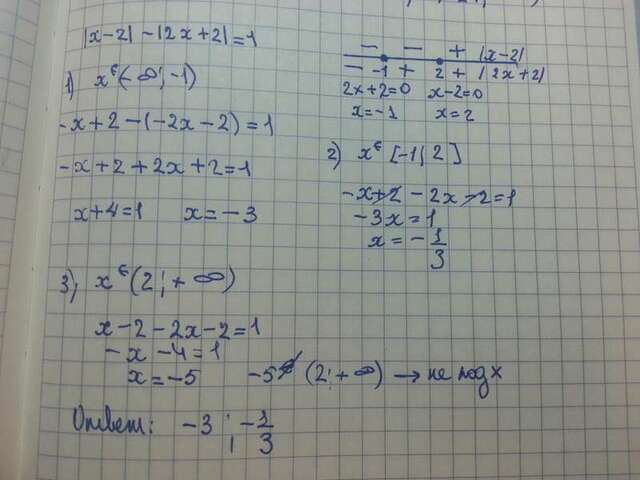 |x-2| - |2x+2| = 1
1) x ∈ (-∞; -1)
-x+2-(-2x-2)=1
-x+2+2x+2=1
x+4=1 x=-3
- - + |x-2|
- -1 + 2 + |2x+2|
2x+2=0 x-2=0
x=-1 x=2
2) x ∈ [-1; 2]
-x+2-2x-2=1
-3x=1
x=-1/3
3) x ∈ (2; +∞)
x-2-2x-2=1
-x-4=1
x=-5 -5 ∉ (2; +∞) → не подх
Ответ: -3; -1/3